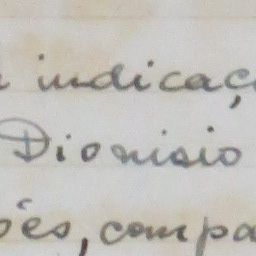 indicaç
Dionisio
ões, compa